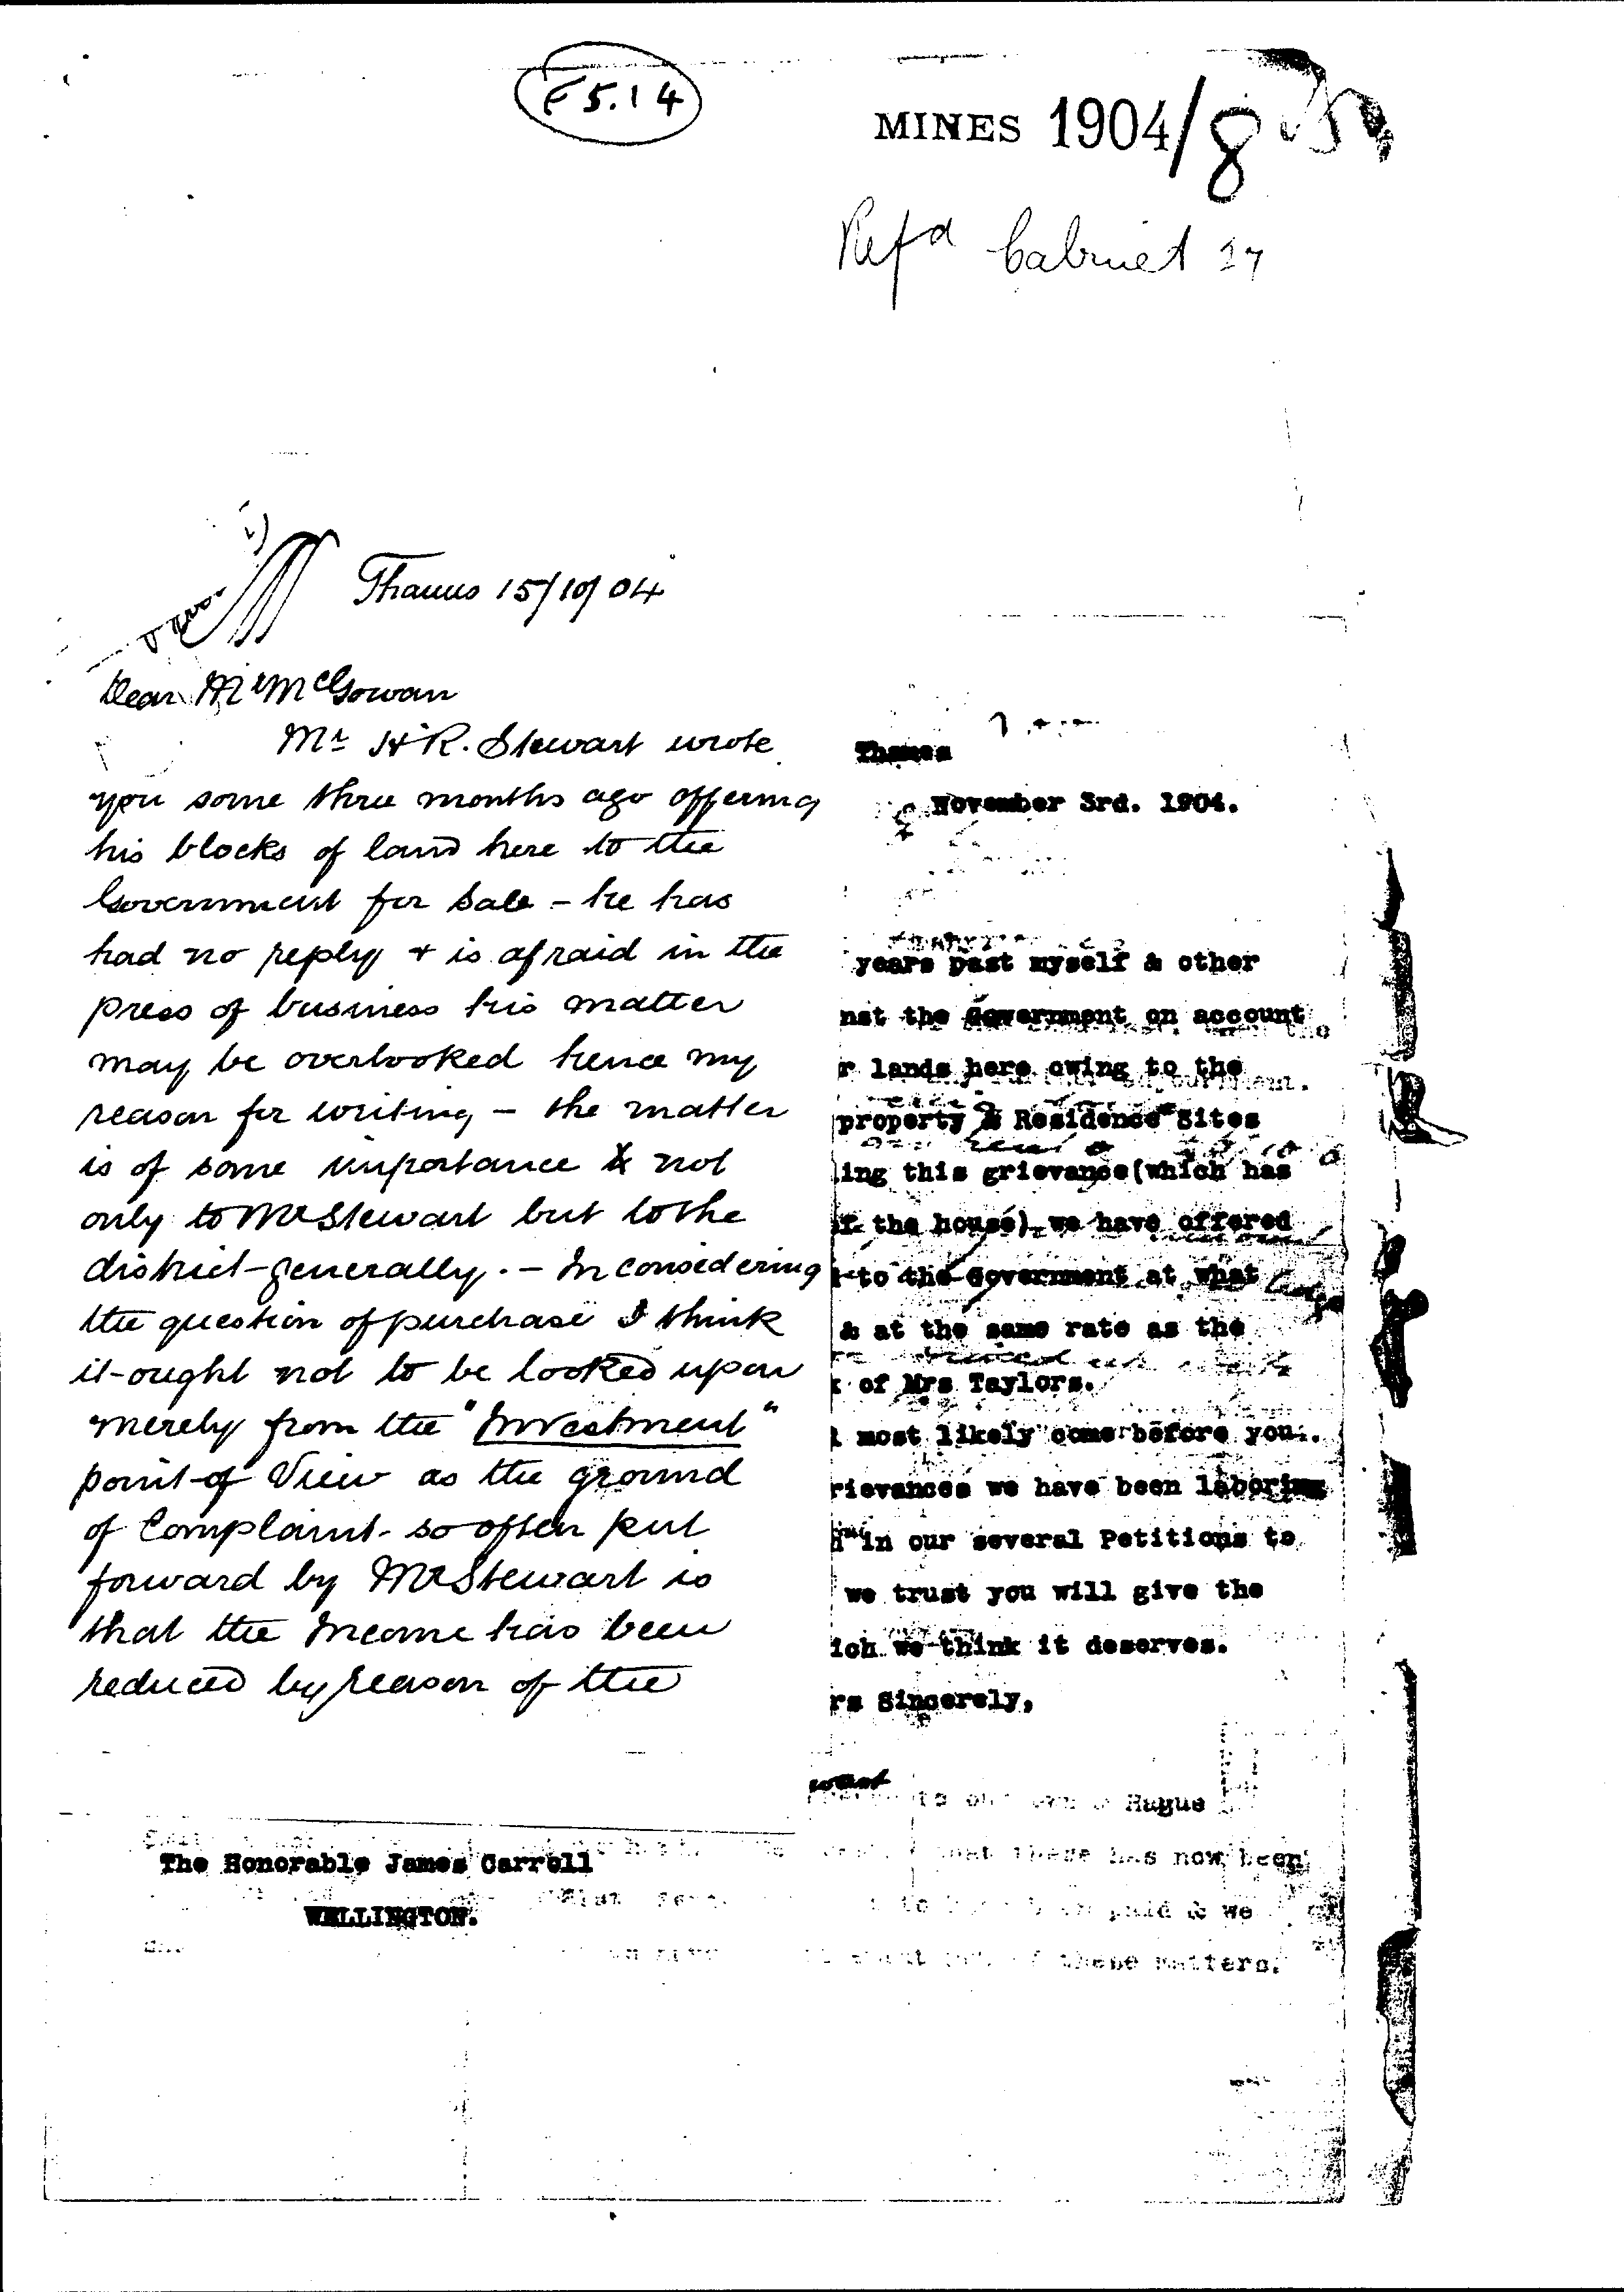 E5.14
MINES 1904/8
Refd Cabinet 27
Thames 15/10/04
Dear Mr McGowan
Mr H R. Stewart wrote
you some three months ago offering
his blocks of land here to the
Government for Sale - he has
had no reply & is afraid in the
press of business his matter
may be overlooked hence my
reason for writing - the matter
is of some importance & not
only to Mr Stewart but to the
district generally. - In considering
the question of purchase I think
it ought not to be looked upon
merely from the "Investment"
point of View as the ground
of Complaint so often put
forward by Mr Stewart is
that the Income has been
reduced by reason of the
Thames
November 3rd. 1904.
years past myself & other
nst the Government on account
r lands here owing to the
property & Residence Sites
ing this grievance(which has
f the house) we have offered
to the Government at what
& at the same rate as the
t of Mrs Taylors.
l most likely come before you.
rievances we have been laboring
in our several Petitions to
we trust you will give the
ich we think it deserves.
rs Sincerely,
Hague
The Honorable James Carroll
WELLINGTON.
that these has now been
paid & we
these matters.